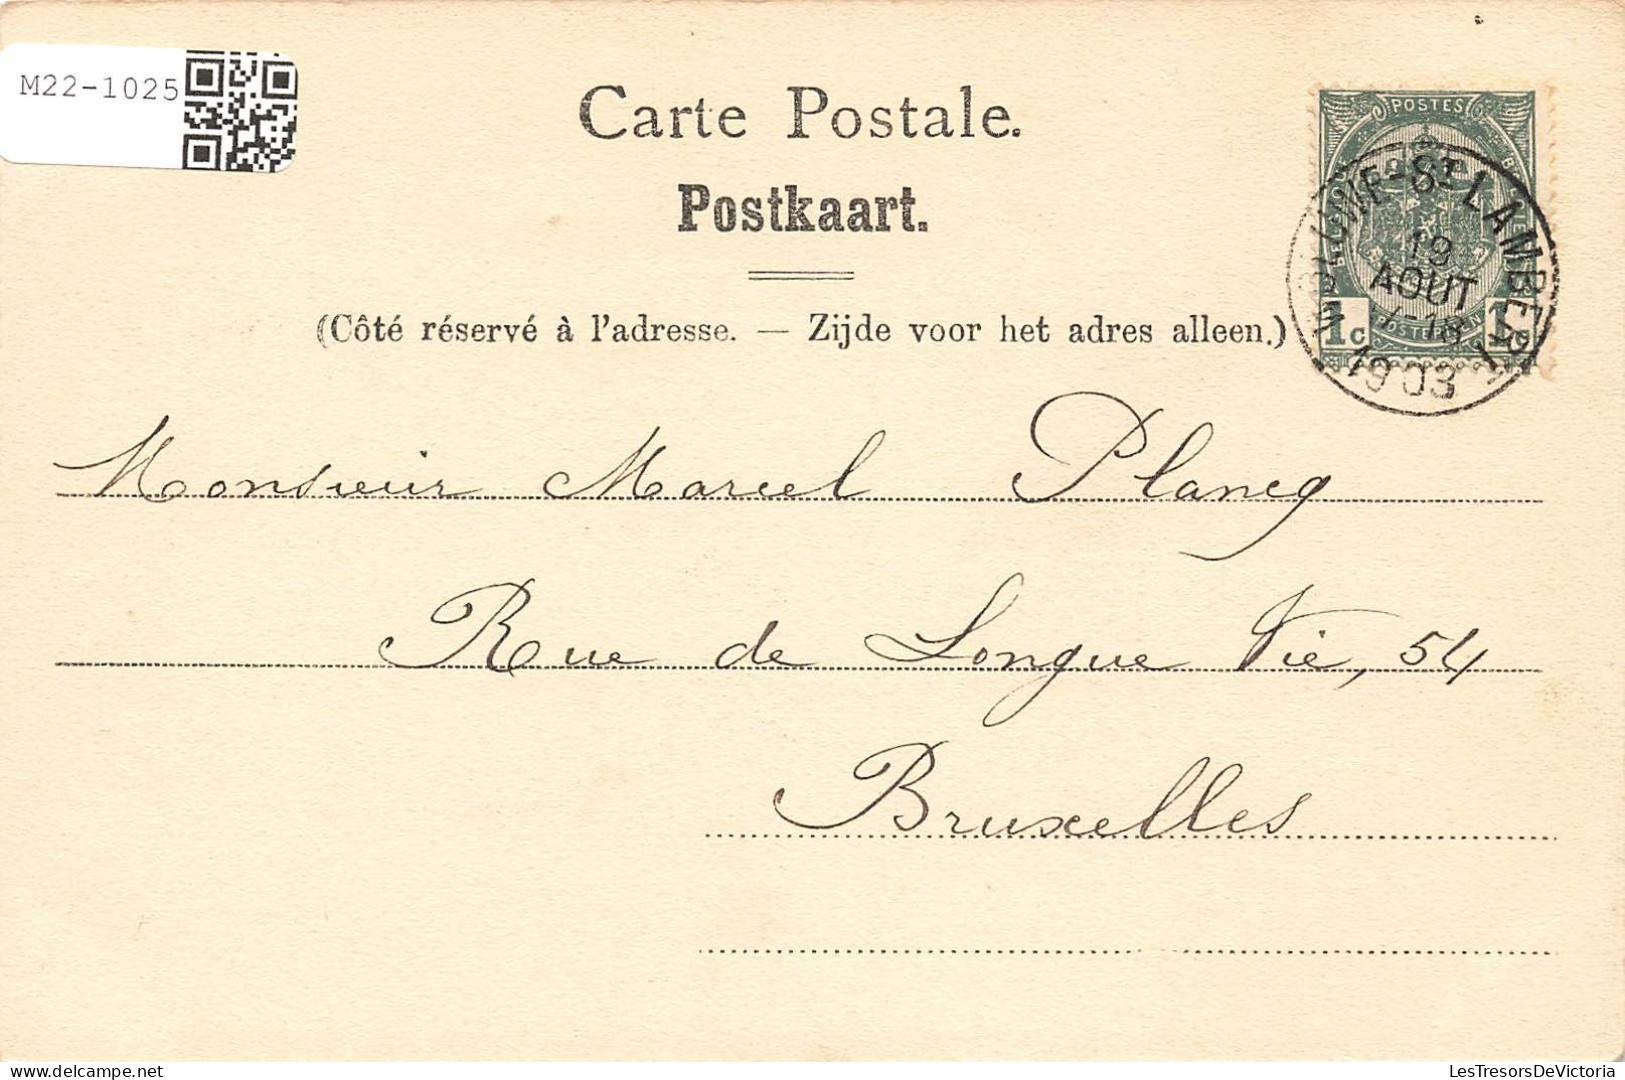 M22-1025
Carte Postale.
Postkaart.
(Côté réservé à l'adresse. — Zijde voor het adres alleen.)
POSTES
1c
WOLUWE-St LAMBERT
19
AOUT
1903
Monsieur Marcel Plancq
Rue de Longue Vie, 54
Bruxelles
delcampe.net
LesTresorsDeVictoria